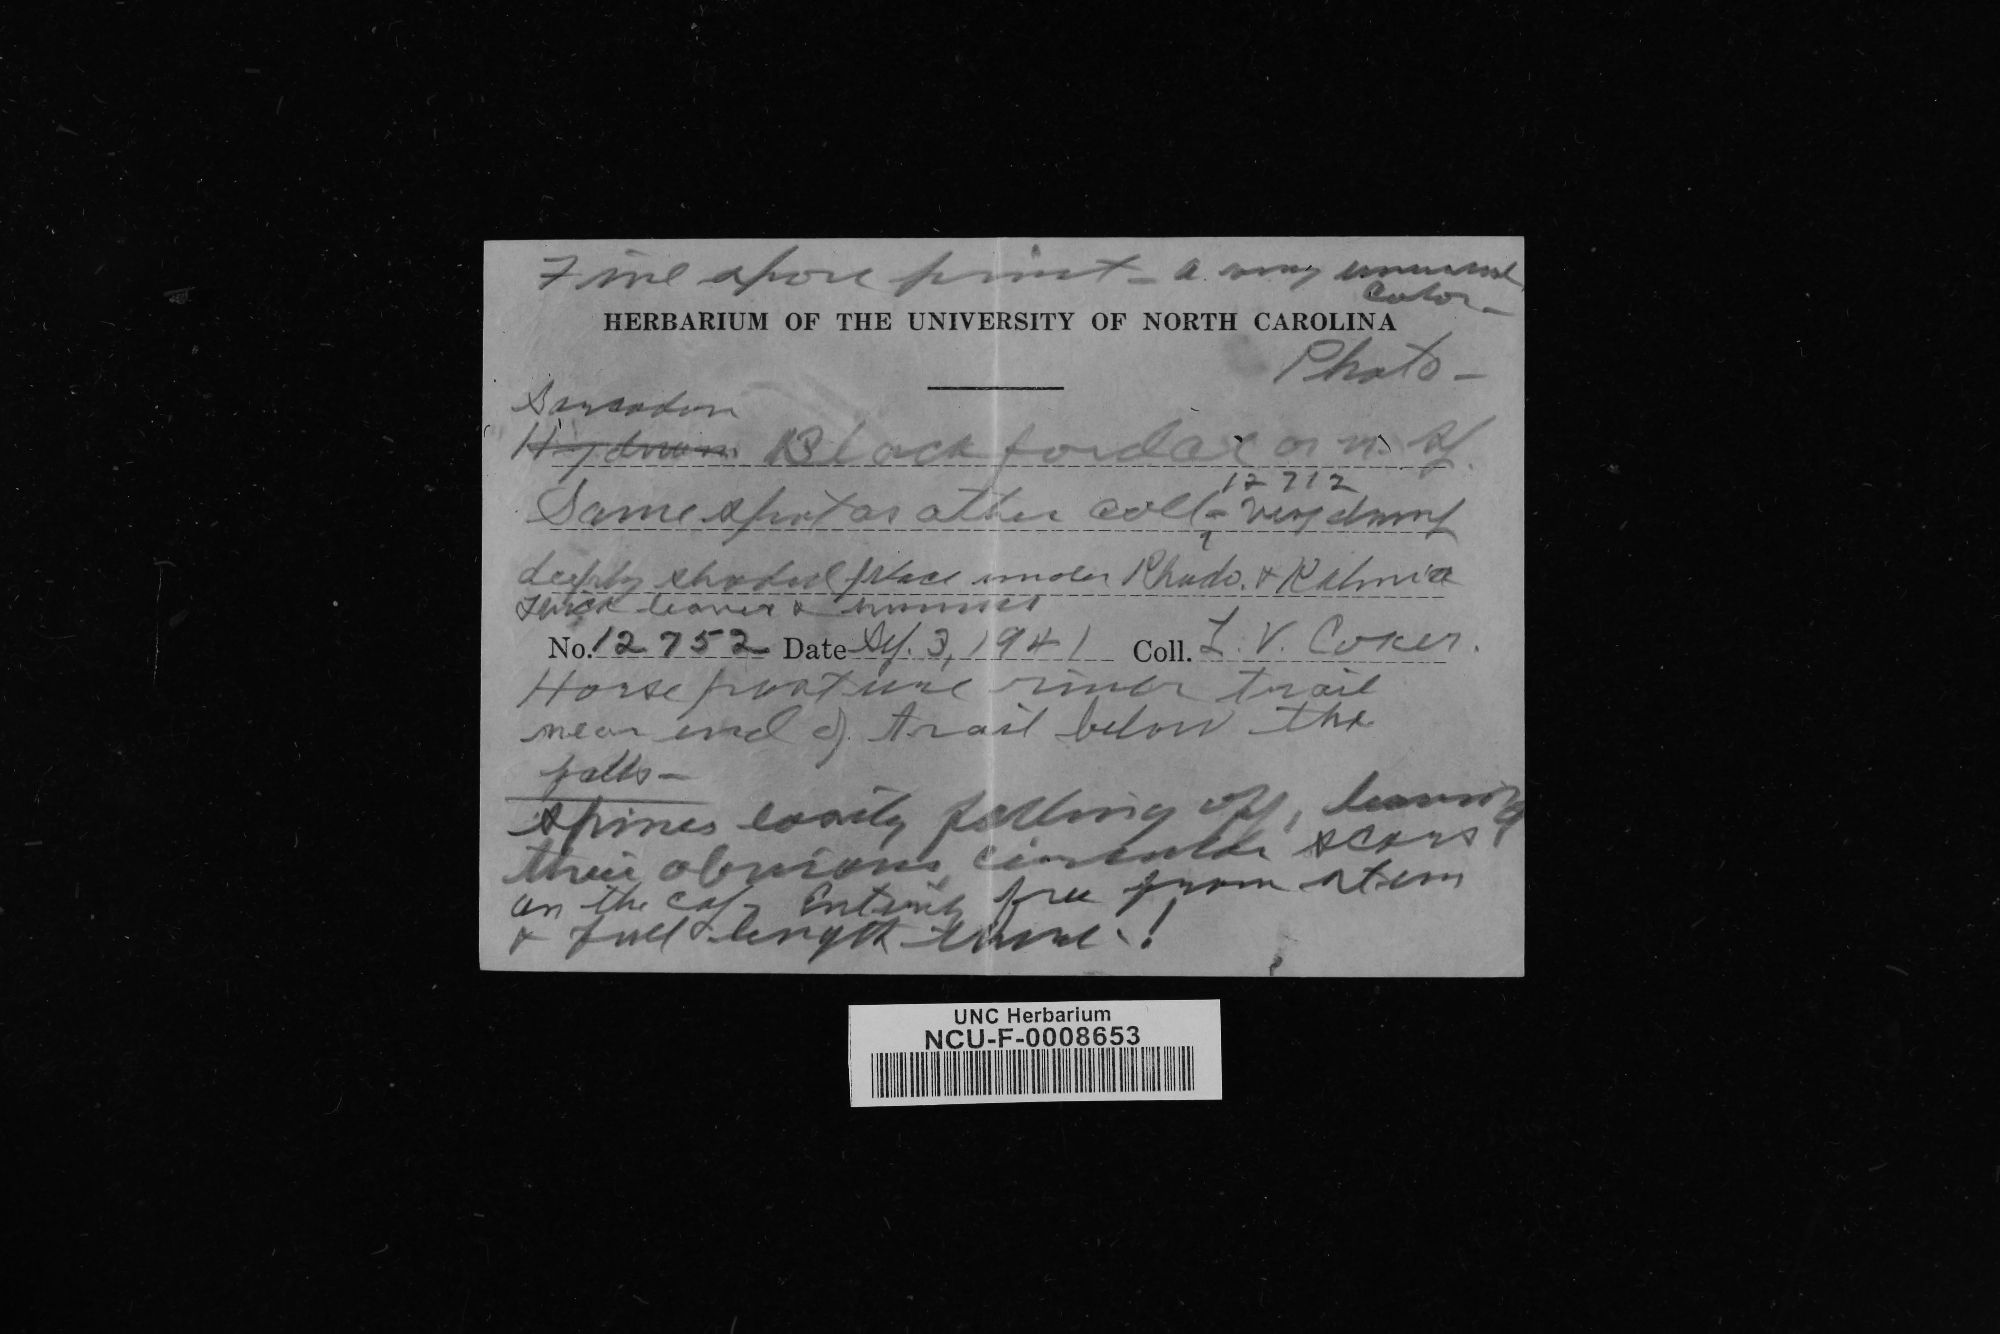 Fine spore print - a very unusual
color -
HERBARIUM OF THE UNIVERSITY OF NORTH CAROLINA
Photo -
Sarcodon
Hydnum Blackfordae or n. sp.
12712
Same spot as other coll - very damp
deeply shaded place under Rhodo. & Kalmia
thick leaves & humus
No. 12752 Date Sep. 3, 1941 Coll. L. V. Coker.
Horse pasture river trail
near end of trail below the
falls -
Spines easily falling off, leaving
their obvious circular scars
on the cap, Entirely free from stem
& full length there!